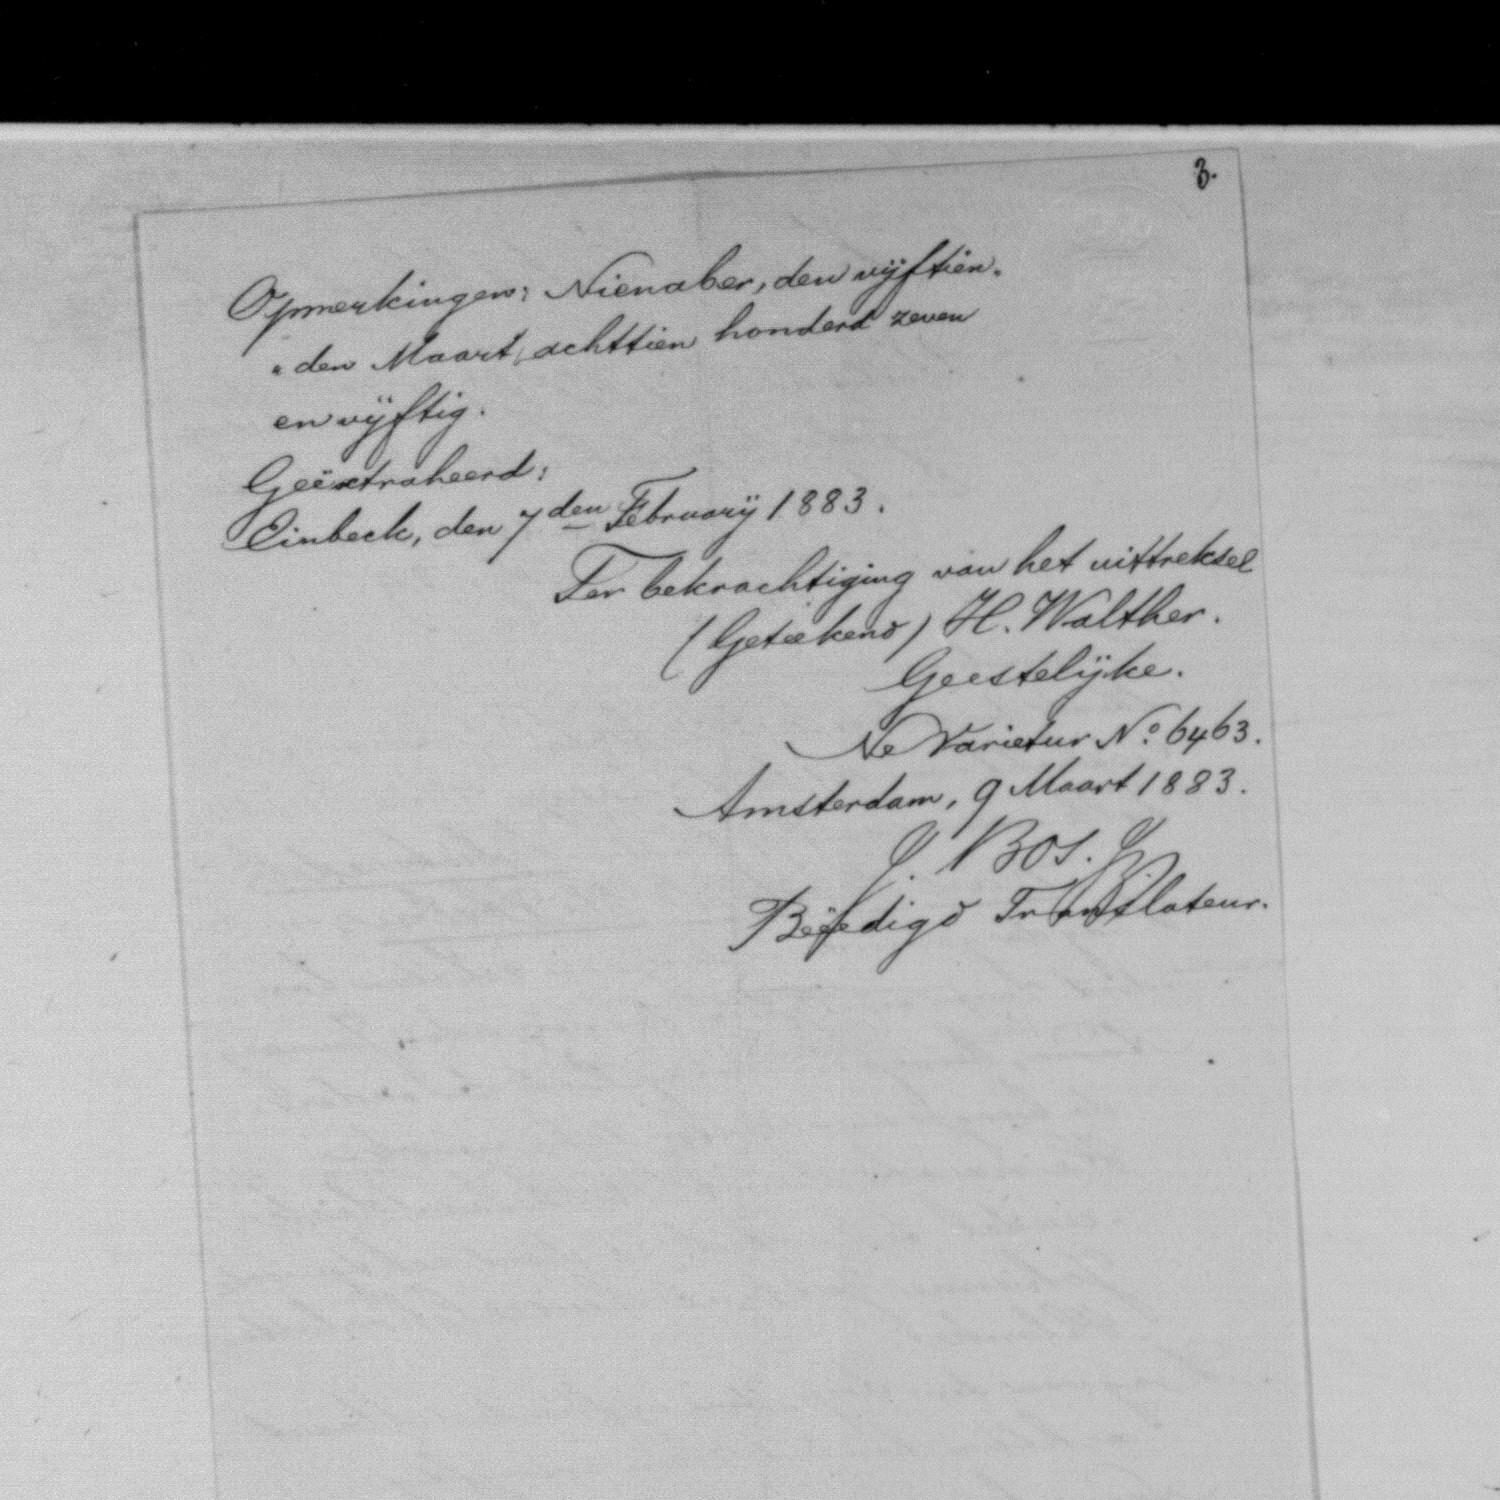 3.
Opmerkingen: Nienaber, den vÿftien„
„den Maart, achttien honderd zeven
en vÿftig.
Geëxtraheerd:
Einbeck, den 7den Februarÿ 1883.
Ter bekrachtiging van het uittreksel
(Geteekend) H. Walther.
Geestelÿke.
Ne Varietur No. 6463.
Amsterdam, 9 Maart 1883.
J. Bos. Jz
Beëedigd Translateur.